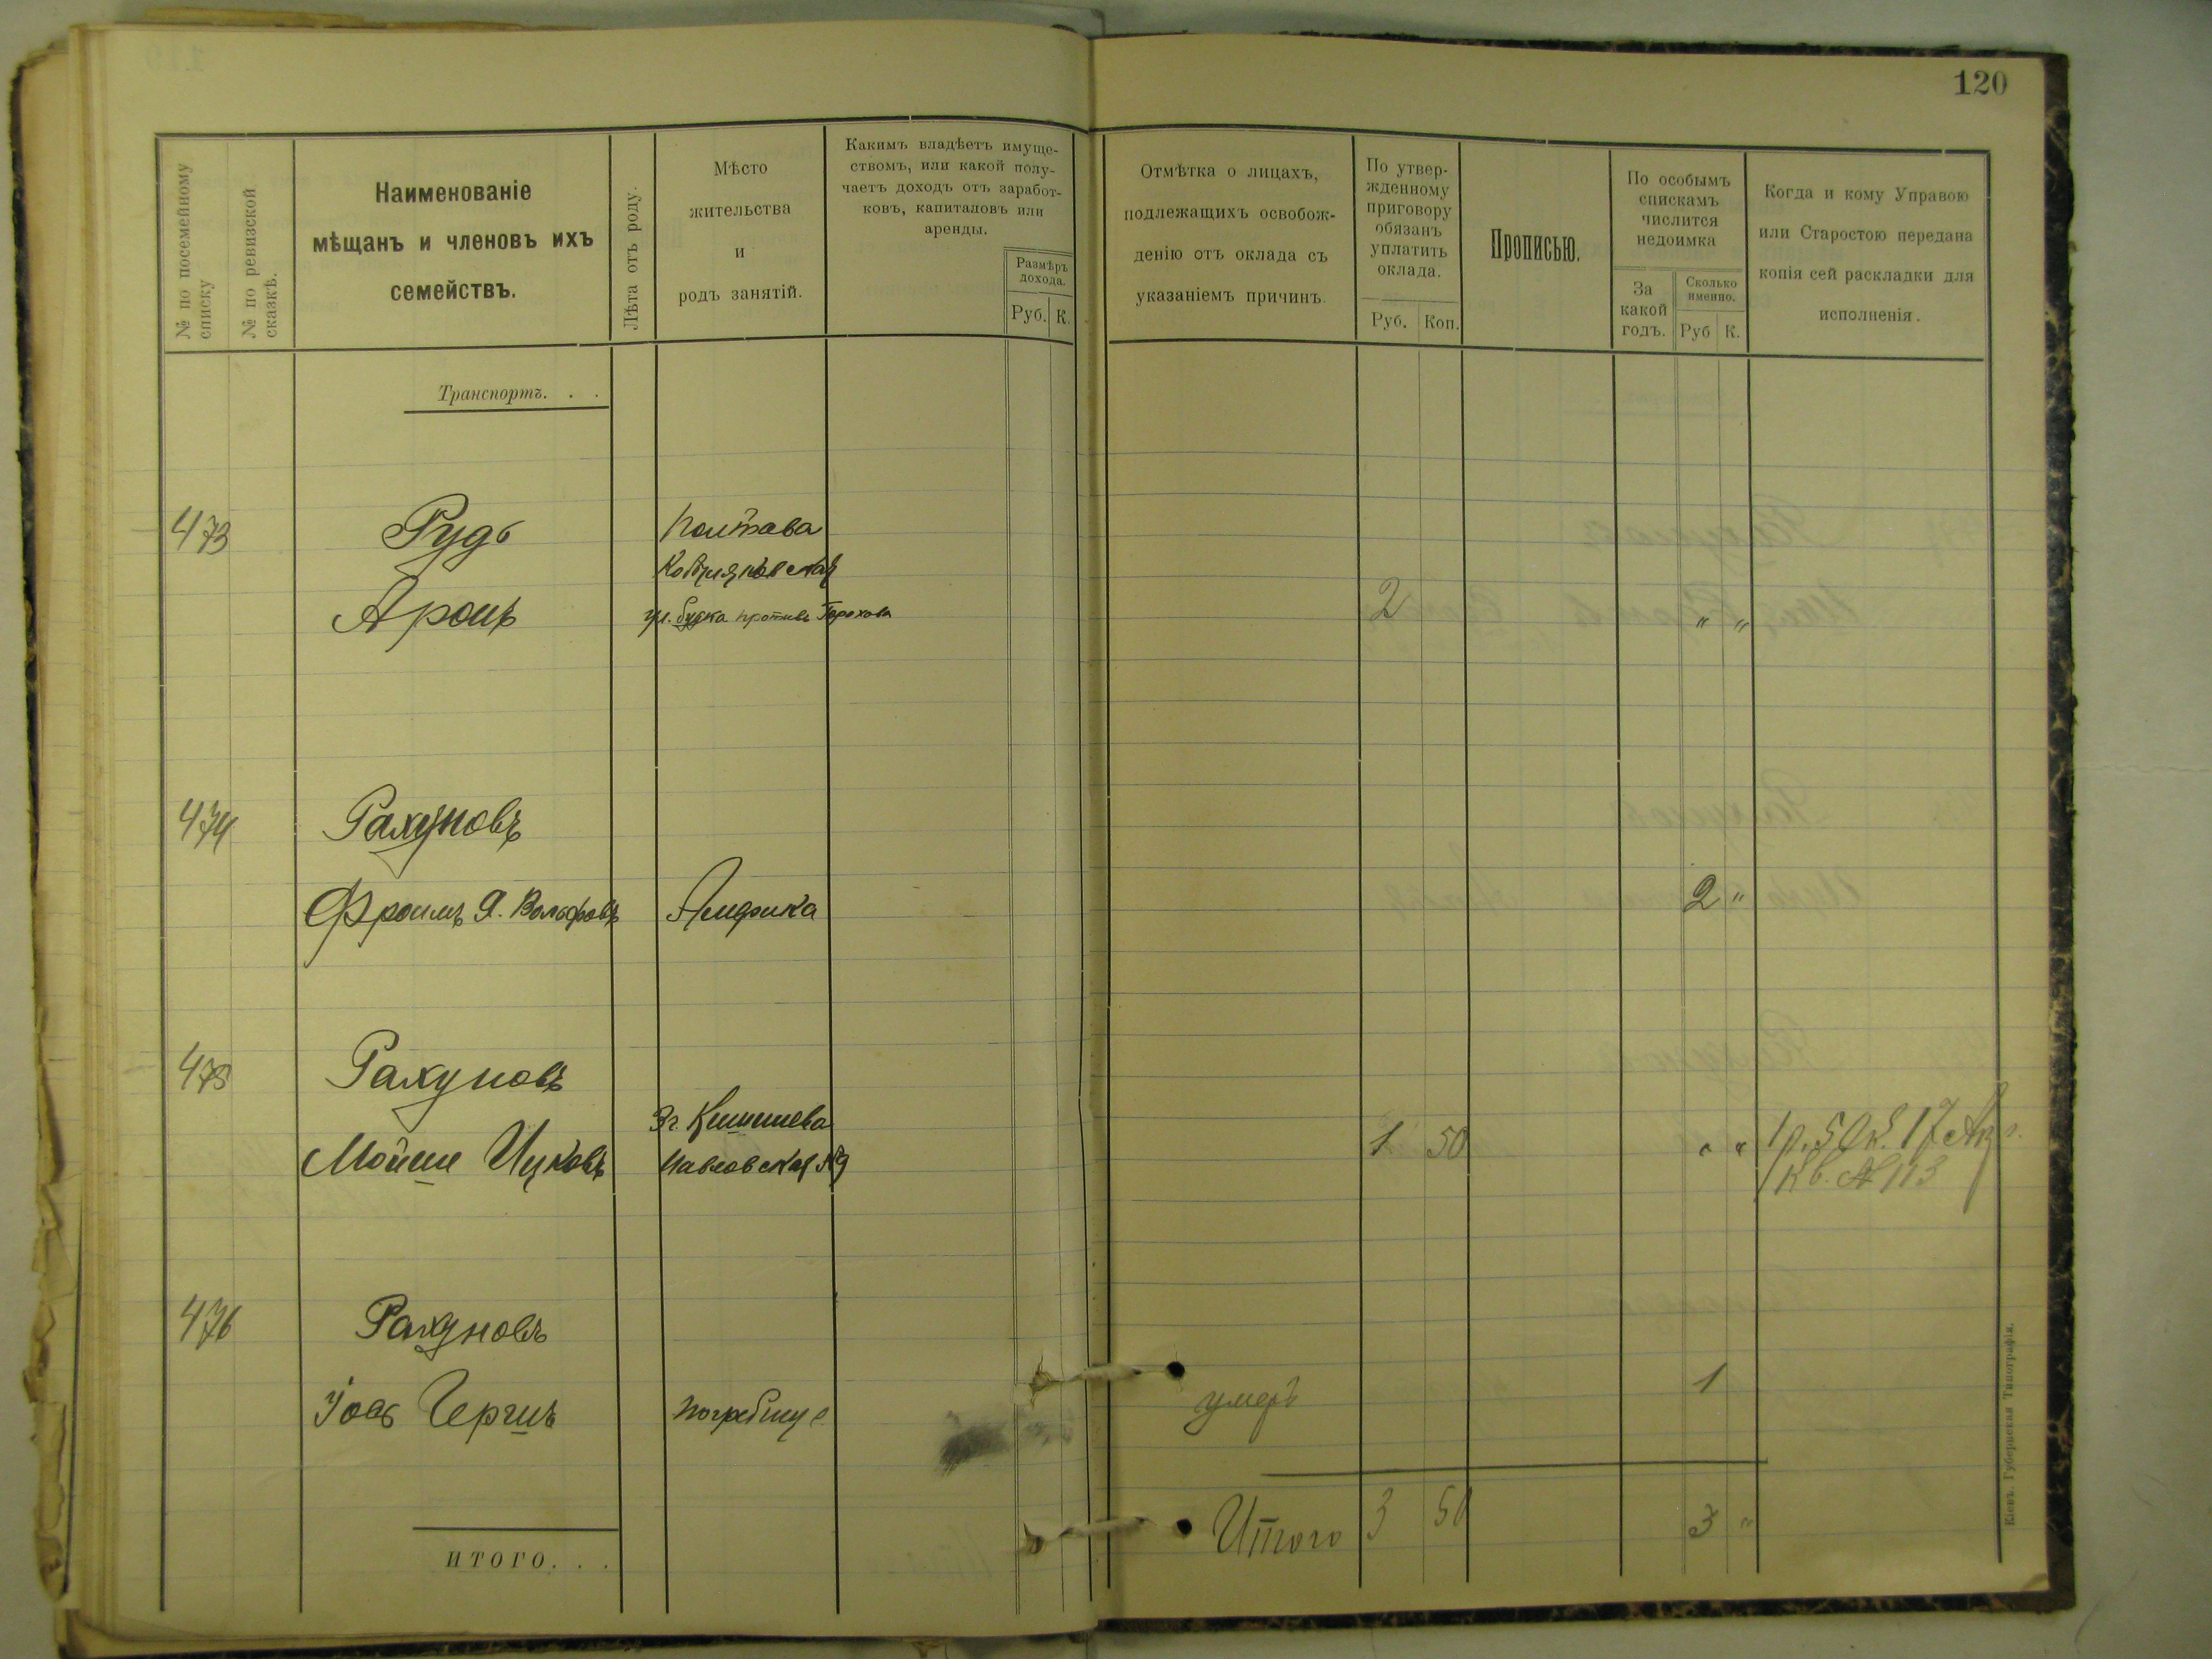 120
№ по посемейному списку
№ по ревизской сказкѣ.
Наименованіе
мѣщанъ и членовъ ихъ
семействъ.
Лѣта отъ роду.
Мѣсто
жительства
и
родъ занятій.
Какимъ владѣетъ имуще-
ствомъ, или какой полу-
чаетъ доходъ отъ заработ-
ковъ, капиталовъ или
аренды.
Размѣръ
дохода.
Руб. К.
Отмѣтка о лицахъ,
подлежащихъ освобож-
денію отъ оклада съ
указаніемъ причинъ.
По утвер-
жденному
приговору
обязанъ
уплатить
оклада.
Руб. Коп.
Прописью.
По особымъ
спискамъ
числится
недоимка
За
какой
годъ.
Сколько
именно.
Руб К.
Когда и кому Управою
или Старостою передана
копія сей раскладки для
исполненія.
Транспортъ. . .
473 Рудь Полтава
Кобищяновская
Аронъ ул. будка противъ Горохова 2 " "
474 Рахуновъ
Фроимъ Я. Вольфовъ Америка 2 "
475 Рахуновъ
Мойше Ицковъ г. Кишинева
Павловская 1 50 " " 1р. 50к. 17
Кв. № 113
476 Рахуновъ
Іось Гершъ Погребище умеръ 1
ИТОГО. . .
Итого 3 50 3 "
Кіевъ. Губернская Типографія.